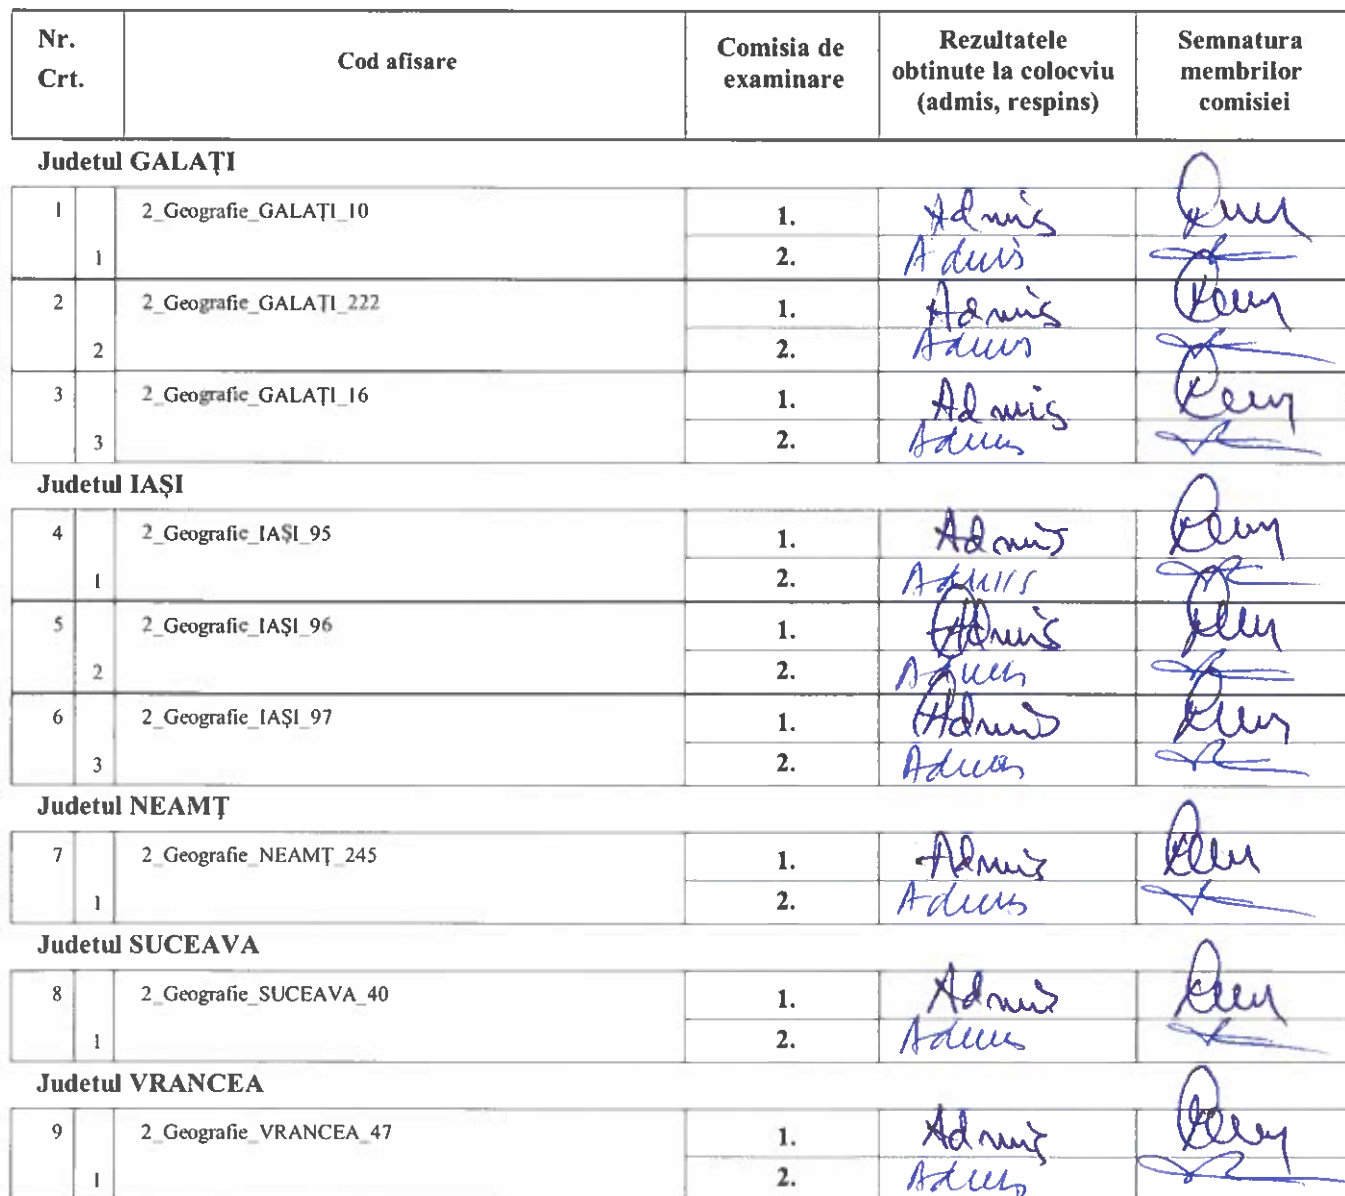 Nr. Crt. Cod afisare Comisia de examinare Rezultatele obtinute la colocviu (admis, respins) Semnatura membrilor comisiei
Judetul GALAȚI
1 2_Geografie_GALAȚI_10 1. Admis
1 2. Admis
2 2_Geografie_GALAȚI_222 1. Admis
2 2. Admis
3 2_Geografie_GALAȚI_16 1. Admis
3 2. Admis
Judetul IAȘI
4 2_Geografie_IAȘI_95 1. Admis
1 2. Admis
5 2_Geografie_IAȘI_96 1. Admis
2 2. Admis
6 2_Geografie_IAȘI_97 1. Admis
3 2. Admis
Judetul NEAMȚ
7 2_Geografie_NEAMȚ_245 1. Admis
1 2. Admis
Judetul SUCEAVA
8 2_Geografie_SUCEAVA_40 1. Admis
1 2. Admis
Judetul VRANCEA
9 2_Geografie_VRANCEA_47 1. Admis
1 2. Admis